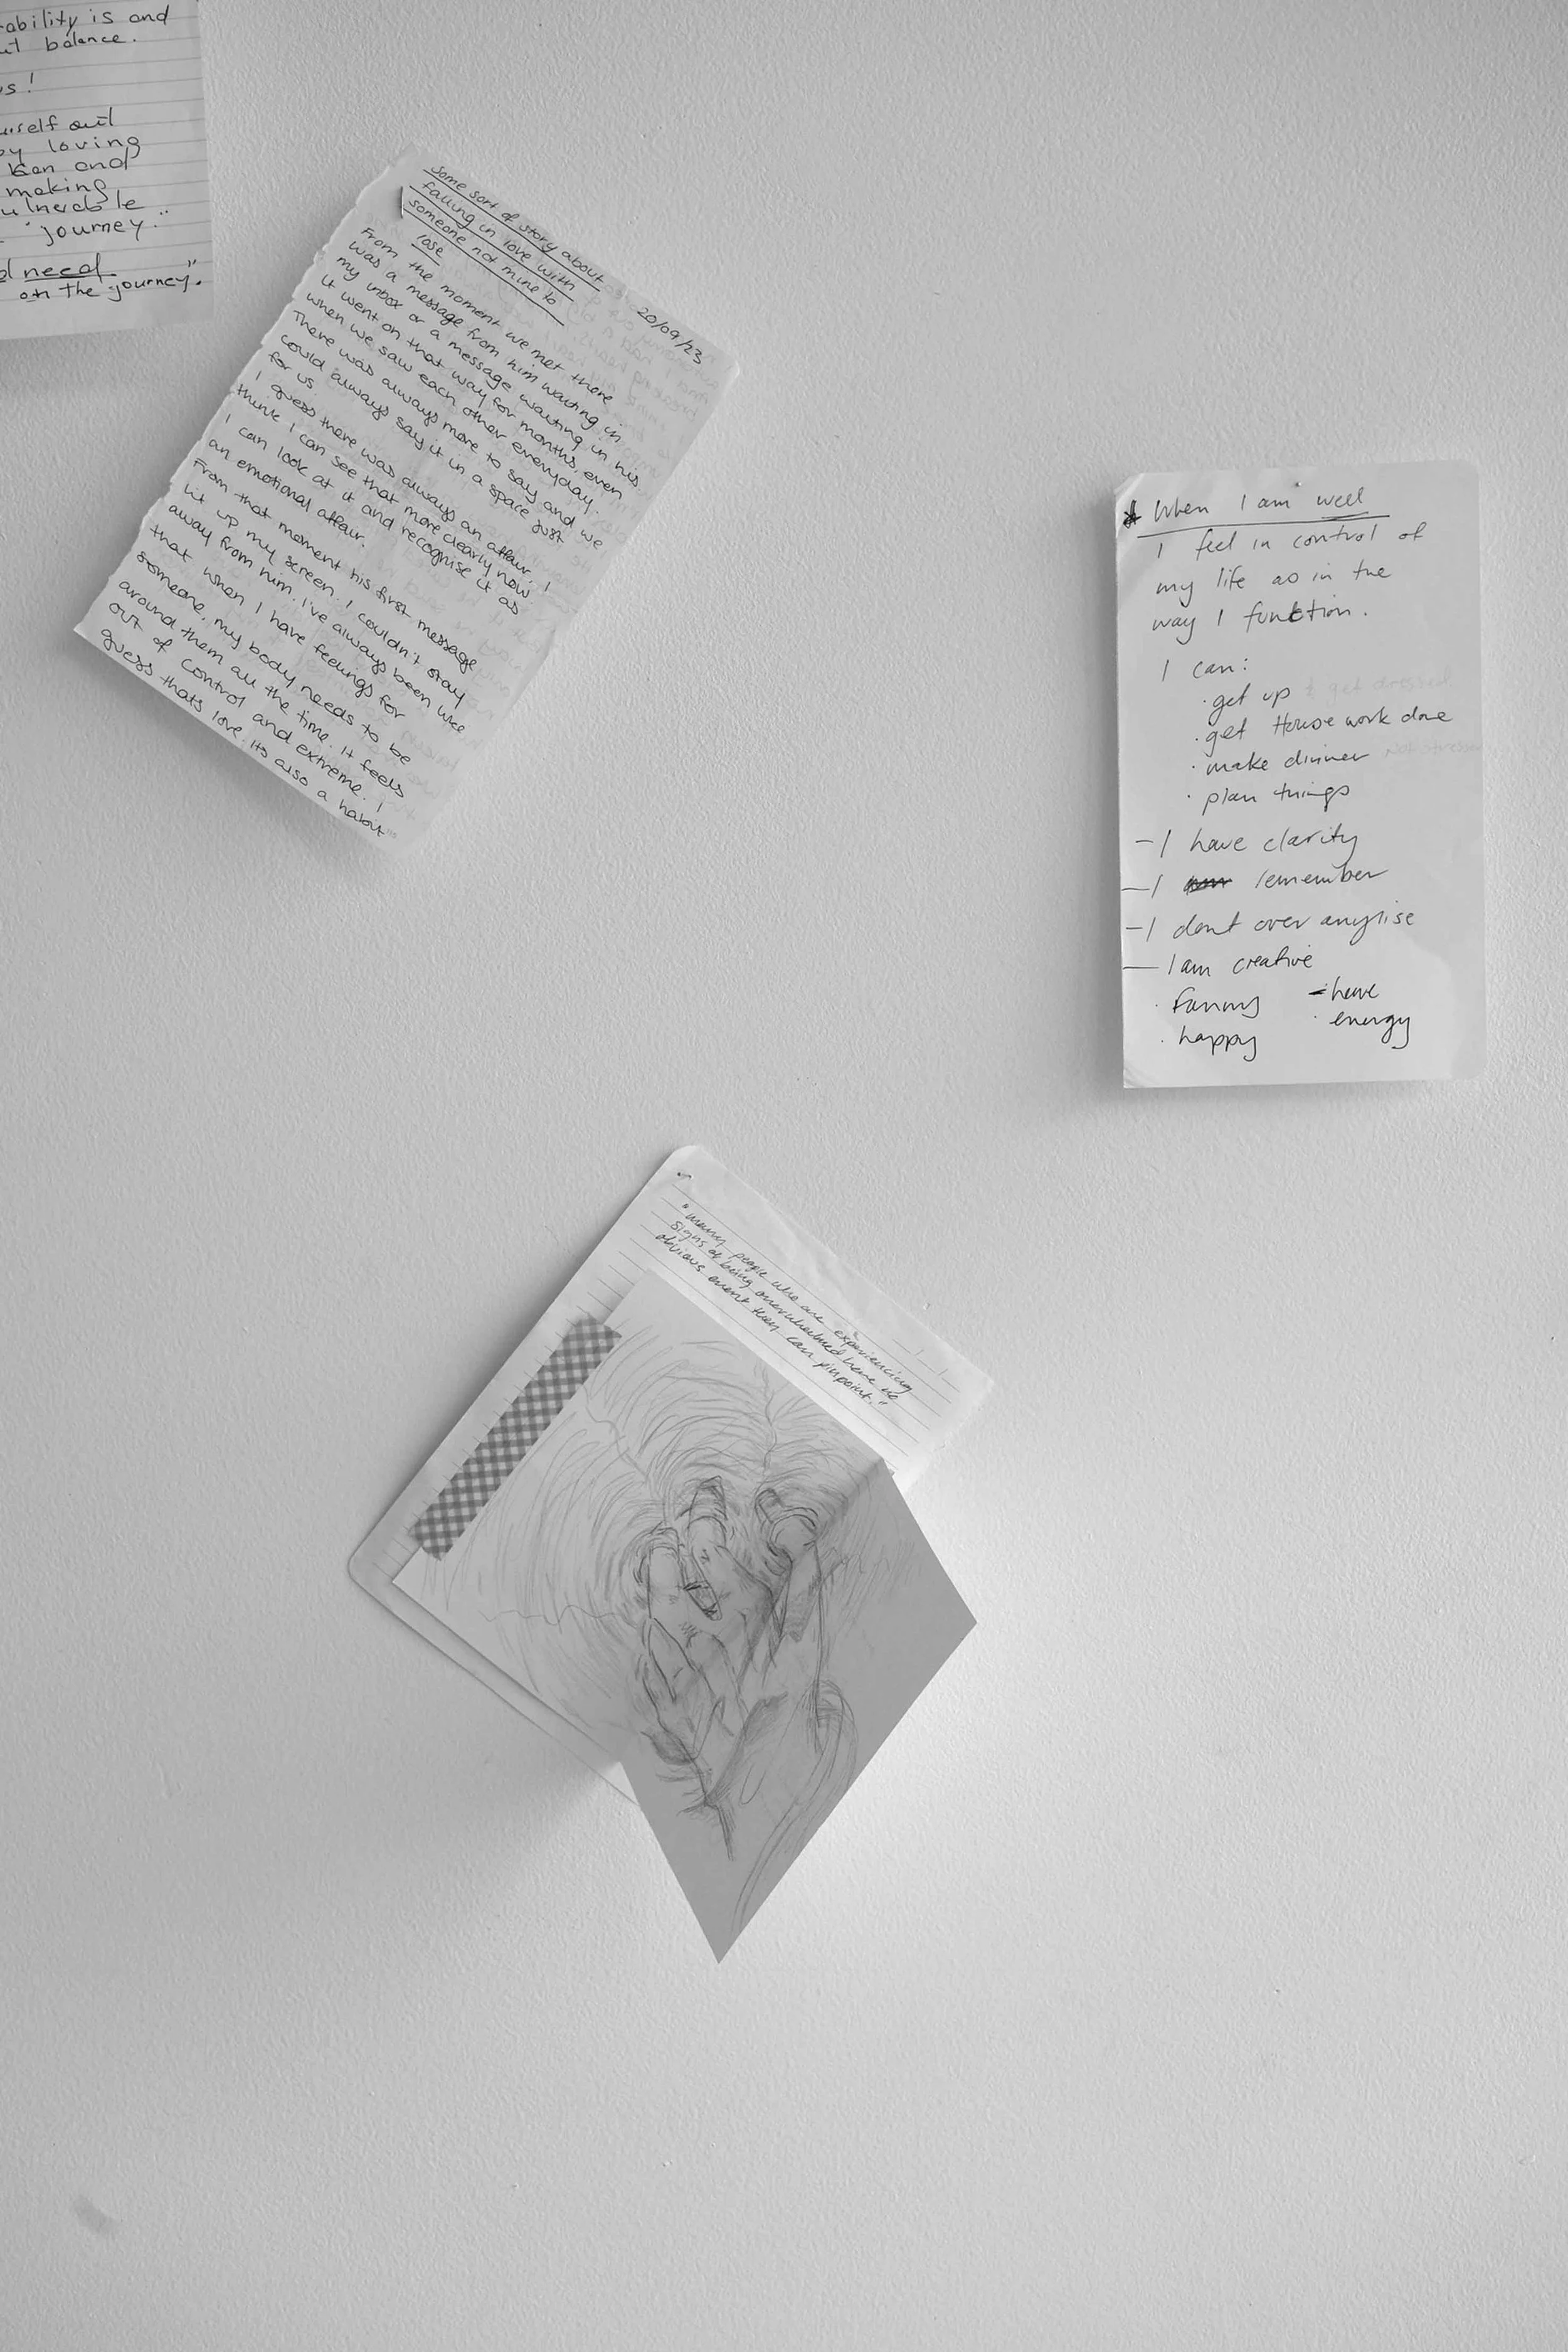 ability is and
balance.
s!
urself out
by loving
and
making
ulnerable
"journey."
need
on the journey".
Some sort of story about
falling in love with
someone not mine to
lose
20/09/23
From the moment we met there
was a message from him waiting in
my inbox or a message waiting in his.
It went on that way for months, even
when we saw each other everyday.
There was always more to say and we
could always say it in a space just
for us
I guess there was always an affair, I
think I can see that more clearly now.
I can look at it and recognise it as
an emotional affair.
From that moment his first message
lit up my screen. I couldn't stay
away from him. I've always been like
that when I have feelings for
someone, my body needs to be
around them all the time. It feels
out of control and extreme. I
guess thats love. Its also a habit"
* When I am well
I feel in control of
my life as in the
way I function.
I can:
· get up & get dressed
· get House work done
· make dinner Not stressed
· plan things
- I have clarity
- I remember
- I dont over anylise
- I am creative
· Funny - have
· happy · energy
"many people who are experiencing
signs of being overwhelmed have no
obvious event they can pinpoint."